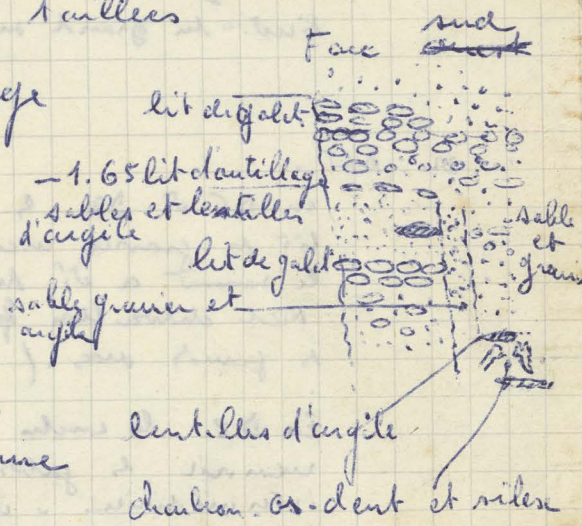 taillées
Face sud
ge
lit de galets
- 1.65 lit d'outillage
sables et lentilles
d'argile
sable
et
lit de galets
sable gravier et
argile
lentilles d'argile
charbon - os - dent et silex